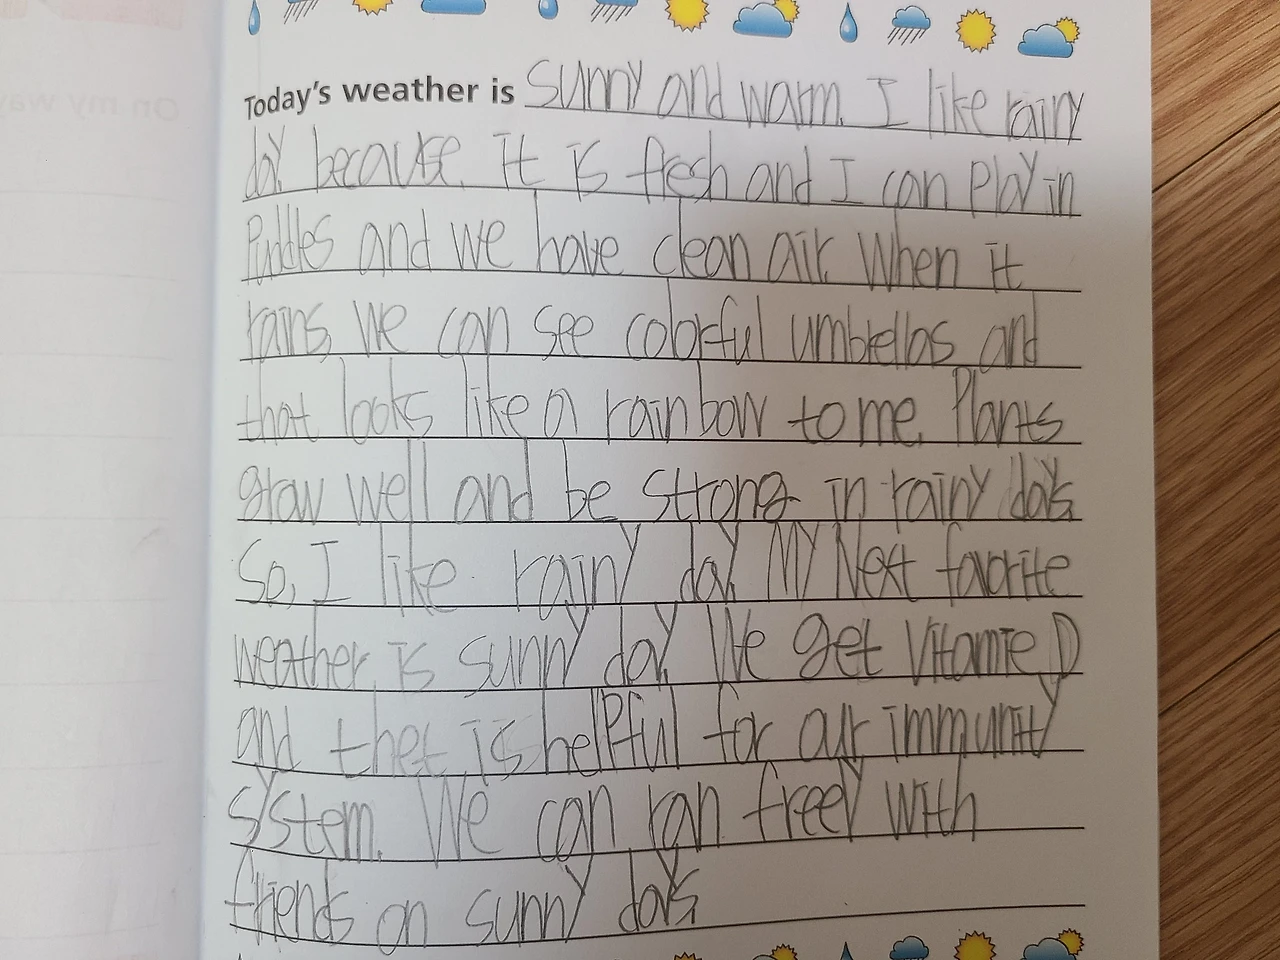 Today's weather is sunny and warm. I like rainy
day because. it is fresh and I can play in
Puddles and we have clean air. When it
rains, We can see colorful umbrellas and
that looks like a rainbow to me. Plants
grow well and be strong in rainy days.
So, I like rainy day. My Next favorite
weather is sunny day. We get Vitamie D
and thet is helpful for our immunity
system. We can ran freely with
friends on sunny days.
On my way